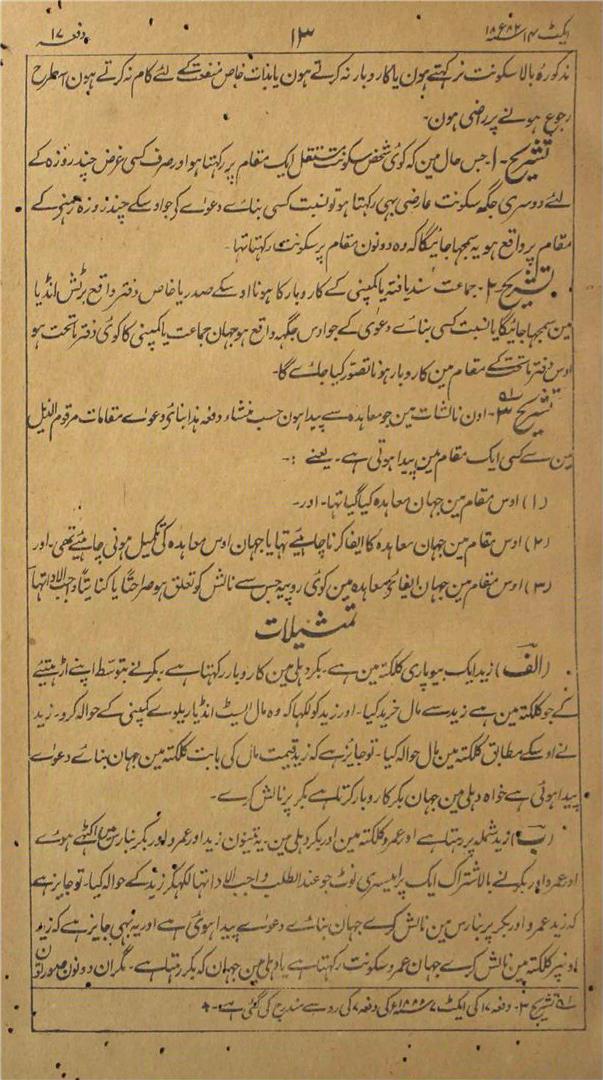 ایکٹ ۱۴ سنہ ۱۸۸۲ء ۱۳ دفعہ ۱۷
مذکورۂ بالا سکونت نہ رکہتے ہون یا کاروبار نہ کرتے ہون یا بذات خاص منفعت کے لئے کام نہ کرتے ہون اسطرح
رجوع ہونے پر راضی ہون۔
تشریح ۱۔ جس حال مین کہ کوئی شخص سکونت مستقل ایک مقام پر رکہتا ہو اور صرف کسی غرض چند روزہ کے
لئے دوسری جگہ سکونت عارضی بہی رکہتا ہو تو نسبت کسی بناے دعوے کی جو اوسکے چند روزہ رہنے کے
مقام پر واقع ہو یہ سمجہا جائیگا کہ وہ دونون مقام پر سکونت رکہتا تہا۔
تشریح ۲۔ جماعت سند یافتہ یا کمپنی کے کاروبار کا ہونا اوسکے صدر یا خاص دفتر واقع برٹش انڈیا
مین سمجہا جائیگا یا نسبت کسی بناے دعوی کے جو اوس جگہہ واقع ہو جہان جماعت یا کمپنی کا کوئی دفتر ماتحت ہو
اوس دفتر ماتحت کے مقام مین کاروبار ہونا تصور کیا جاے گا۔
تشریح ۳۔ اون نالشات مین جو معاہدہ سے پیدا ہون حسب منشاء دفعہ ہذا بناے دعوے مقامات مرقوم الذیل
مین سے کسی ایک مقام مین پیدا ہوتی ہے۔ یعنے :۔
(۱) اوس مقام مین جہان معاہدہ کیا گیا تہا۔ اور۔
(۲) اوس مقام مین جہان معاہدہ کا ایفا کرنا چاہئیے تہا یا جہان اوس معاہدہ کی تکمیل ہونی چاہئیے تہی۔ اور
(۳) اوس مقام مین جہان ایفاے معاہدہ مین کوئی روپیہ جس سے نالش کو تعلق ہو صراحتاً یا کنایتاً واجب الادا تہا
تمثیلات
(الف) زید ایک بیوپاری کلکتہ مین ہے۔ بکر دہلی مین کاروبار رکہتا ہے۔ بکر نے بتوسط اپنے اڑہتیئے
کے جو کلکتہ مین ہے زید سے مال خرید کیا۔ اور زید کو لکہا کہ وہ مال ایسٹ انڈیا ریلوے کمپنی کے حوالہ کرو۔ زید
نے اوسکے مطابق کلکتہ مین مال حوالہ کیا۔ تو جائز ہے کہ زید قیمت مال کی بابت کلکتہ مین جہان بناے دعوے
پیدا ہوئی ہے خواہ دہلی مین جہان بکر کاروبار کرتا ہے بکر پر نالش کرے۔
(ب) زید شملہ پر رہتا ہے اور عمرو کلکتہ مین اور بکر دہلی مین۔ یہ تینون زید اور عمرو اور بکر بنارس مین اکٹہے ہوے
اور عمرو اور بکر نے بالاشتراک ایک پرامیسری نوٹ جو عند الطلب واجب الادا تہا لکہکر زید کے حوالہ کیا۔ تو جائز ہے
کہ زید عمرو اور بکر پر بنارس مین نالش کرے جہان بناے دعوے پیدا ہوئی ہے اور یہ بہی جایز ہے کہ زید
اونپر کلکتہ مین نالش کرے جہان عمرو سکونت رکہتا ہے یا دہلی مین جہان کہ بکر رہتا ہے۔ مگر ان دونون صورتون
تشریح ۳۔ دفعہ ۱۷ کی ایکٹ ۷ سنہ ۱۸۸۸ء کی دفعہ ۷ کی رو سے مندرج کی گئی ہے۔